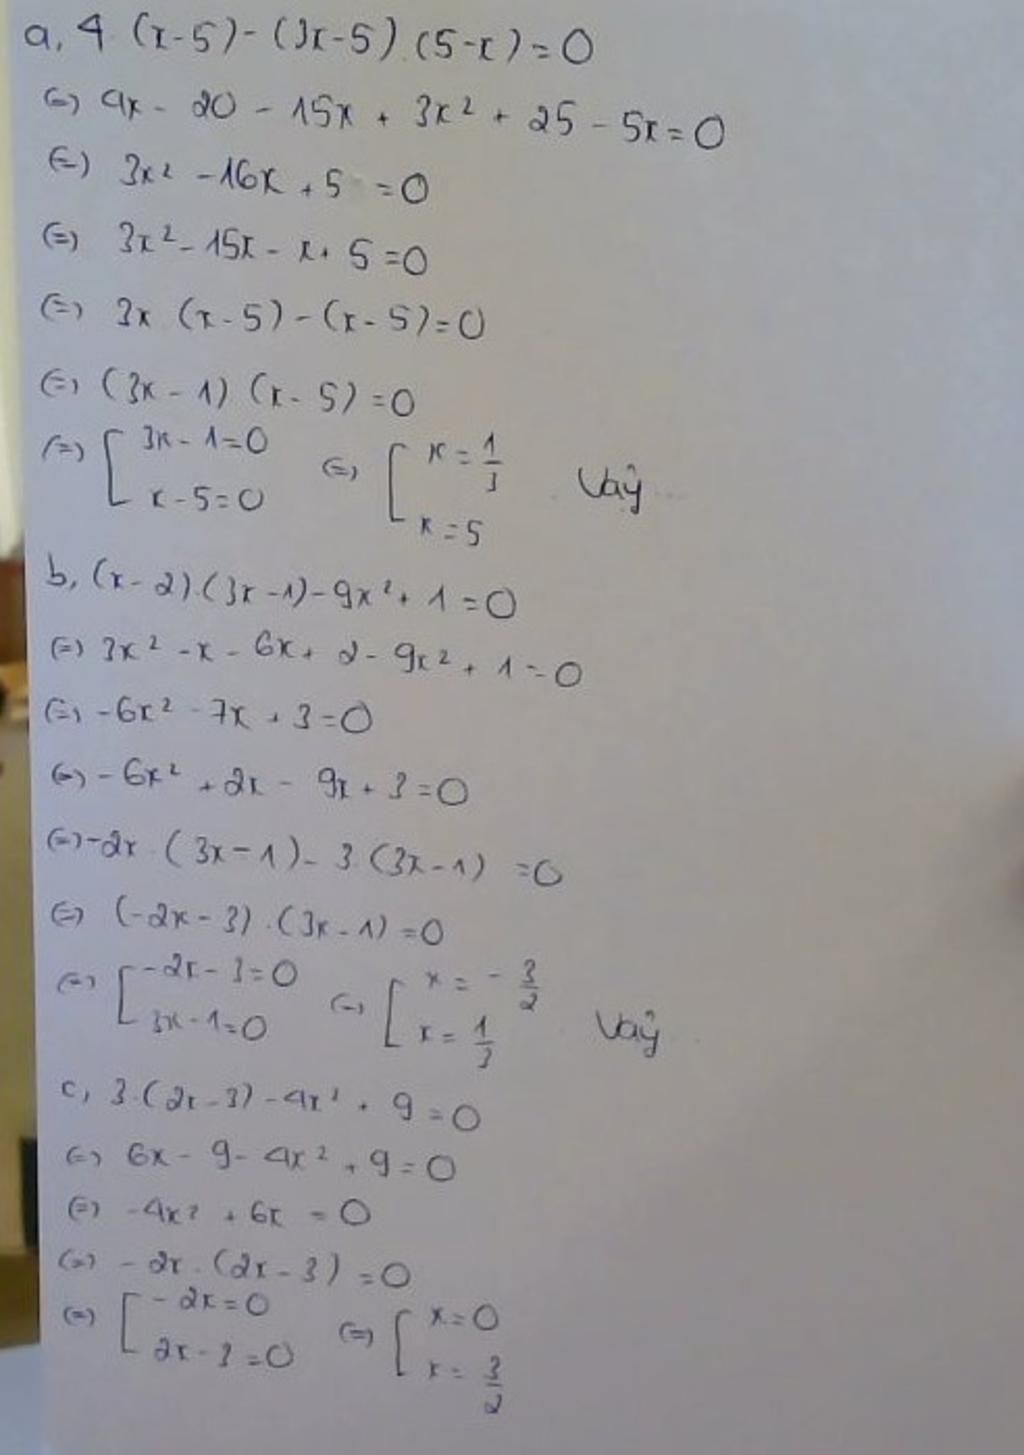 a, 4. (x-5)-(3x-5).(5-x)=0
(=) 4x - 20 - 15x + 3x² + 25 - 5x = 0
(=) 3x² - 16x + 5 = 0
(=) 3x² - 15x - x + 5 = 0
(=) 3x (x-5) - (x-5) = 0
(=) (3x - 1) (x - 5) = 0
(=) [ 3x - 1 = 0 (=) [ x = 1/3 Vậy ...
x - 5 = 0 x = 5
b, (x-2).(3x-1)-9x²+1=0
(=) 3x² - x - 6x + 2 - 9x² + 1 = 0
(=) -6x² - 7x + 3 = 0
(=) -6x² + 2x - 9x + 3 = 0
(=) -2x . (3x-1) - 3.(3x-1) = 0
(=) (-2x - 3) . (3x - 1) = 0
(=) [ -2x - 3 = 0 (=) [ x = - 3/2 Vậy ...
3x - 1 = 0 x = 1/3
c, 3.(2x-3) - 4x² + 9 = 0
(=) 6x - 9 - 4x² + 9 = 0
(=) -4x² + 6x = 0
(=) - 2x . (2x - 3) = 0
(=) [ - 2x = 0 (=) [ x = 0
2x - 3 = 0 x = 3/2